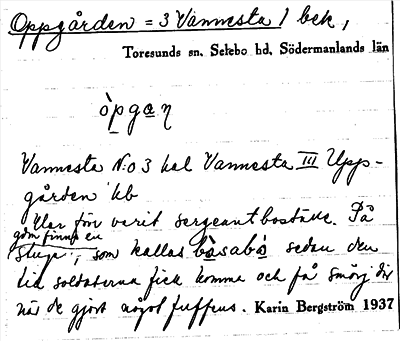 Oppgården = 3 Vannesta / bek,
Toresunds sn. Selebo hd, Södermanlands län
òpga̲ η
Vannesta No 3 kal Vannesta III Upp-
gården kb
Har förr varit sergeantboställe. På
går'n finns en
stuga, som kallas bàsabó sedan den
tid soldaterna fick komma och få smörj där
när de gjort något fuffens. Karin Bergström 1937